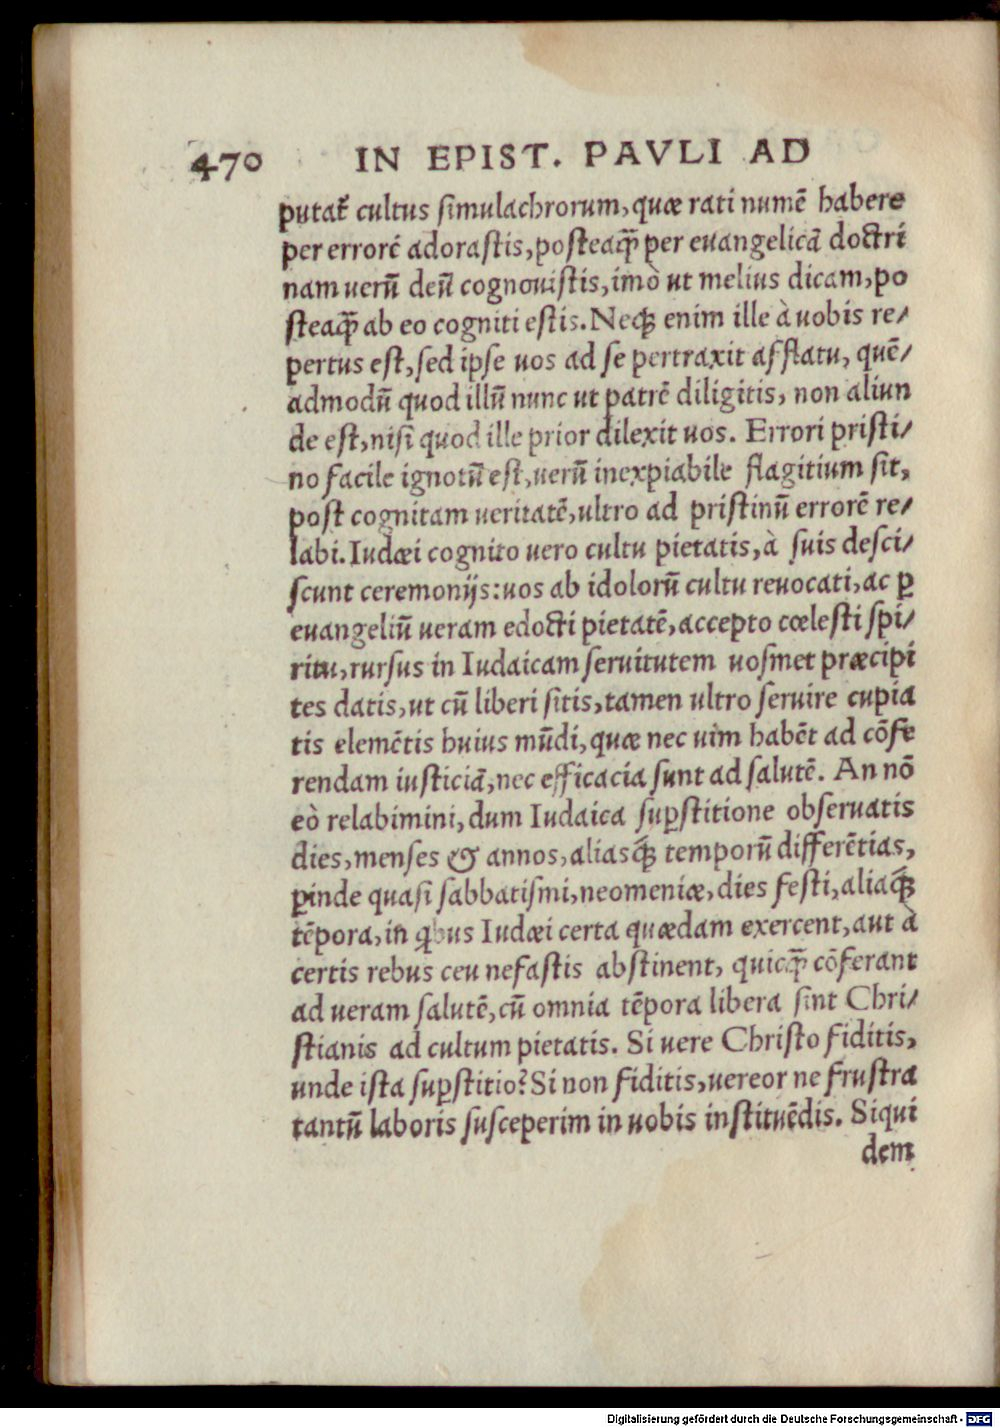 470 IN EPIST. PAVLI AD
putat᷑ cultus simulachrorum, quæ rati numē habere
per errorē adorastis, posteaq̃ per euangelicā doctri
nam uerū deū cognouistis, imò ut melius dicam, po
steaq̃ ab eo cogniti estis. Neq; enim ille à uobis re/
pertus est, sed ipse uos ad se pertraxit afflatu, quē/
admodū quod illū nunc ut patrē diligitis, non aliun
de est, nisi quod ille prior dilexit uos. Errori pristi/
no facile ignotū est, uerū inexpiabile flagitium sit,
post cognitam ueritatē, ultro ad pristinū errorē re/
labi. Iudæi cognito uero cultu pietatis, à suis desci/
scunt ceremonijs: uos ab idolorū cultu reuocati, ac ꝑ
euangeliū ueram edocti pietatē, accepto cœlesti spi/
ritu, rursus in Iudaicam seruitutem uosmet præcipi
tes datis, ut cū liberi sitis, tamen ultro seruire cupia
tis elemētis huius mūdi, quæ nec uim habēt ad cōfe
rendam iusticiā, nec efficacia sunt ad salutē. An nō
eò relabimini, dum Iudaica suꝑstitione obseruatis
dies, menses & annos, aliasq́; temporū differētias,
ꝑinde quasi sabbatismi, neomeniæ, dies festi, aliaq́;
tēpora, in qͥbus Iudæi certa quædam exercent, aut à
certis rebus ceu nefastis abstinent, quicq̃ cōferant
ad ueram salutē, cū omnia tēpora libera sint Chri/
stianis ad cultum pietatis. Si uere Christo fiditis,
unde ista suꝑstitio? Si non fiditis, uereor ne frustra
tantū laboris susceperim in uobis instituēdis. Siqui
dem
Digitalisierung gefördert durch die Deutsche Forschungsgemeinschaft - DFG